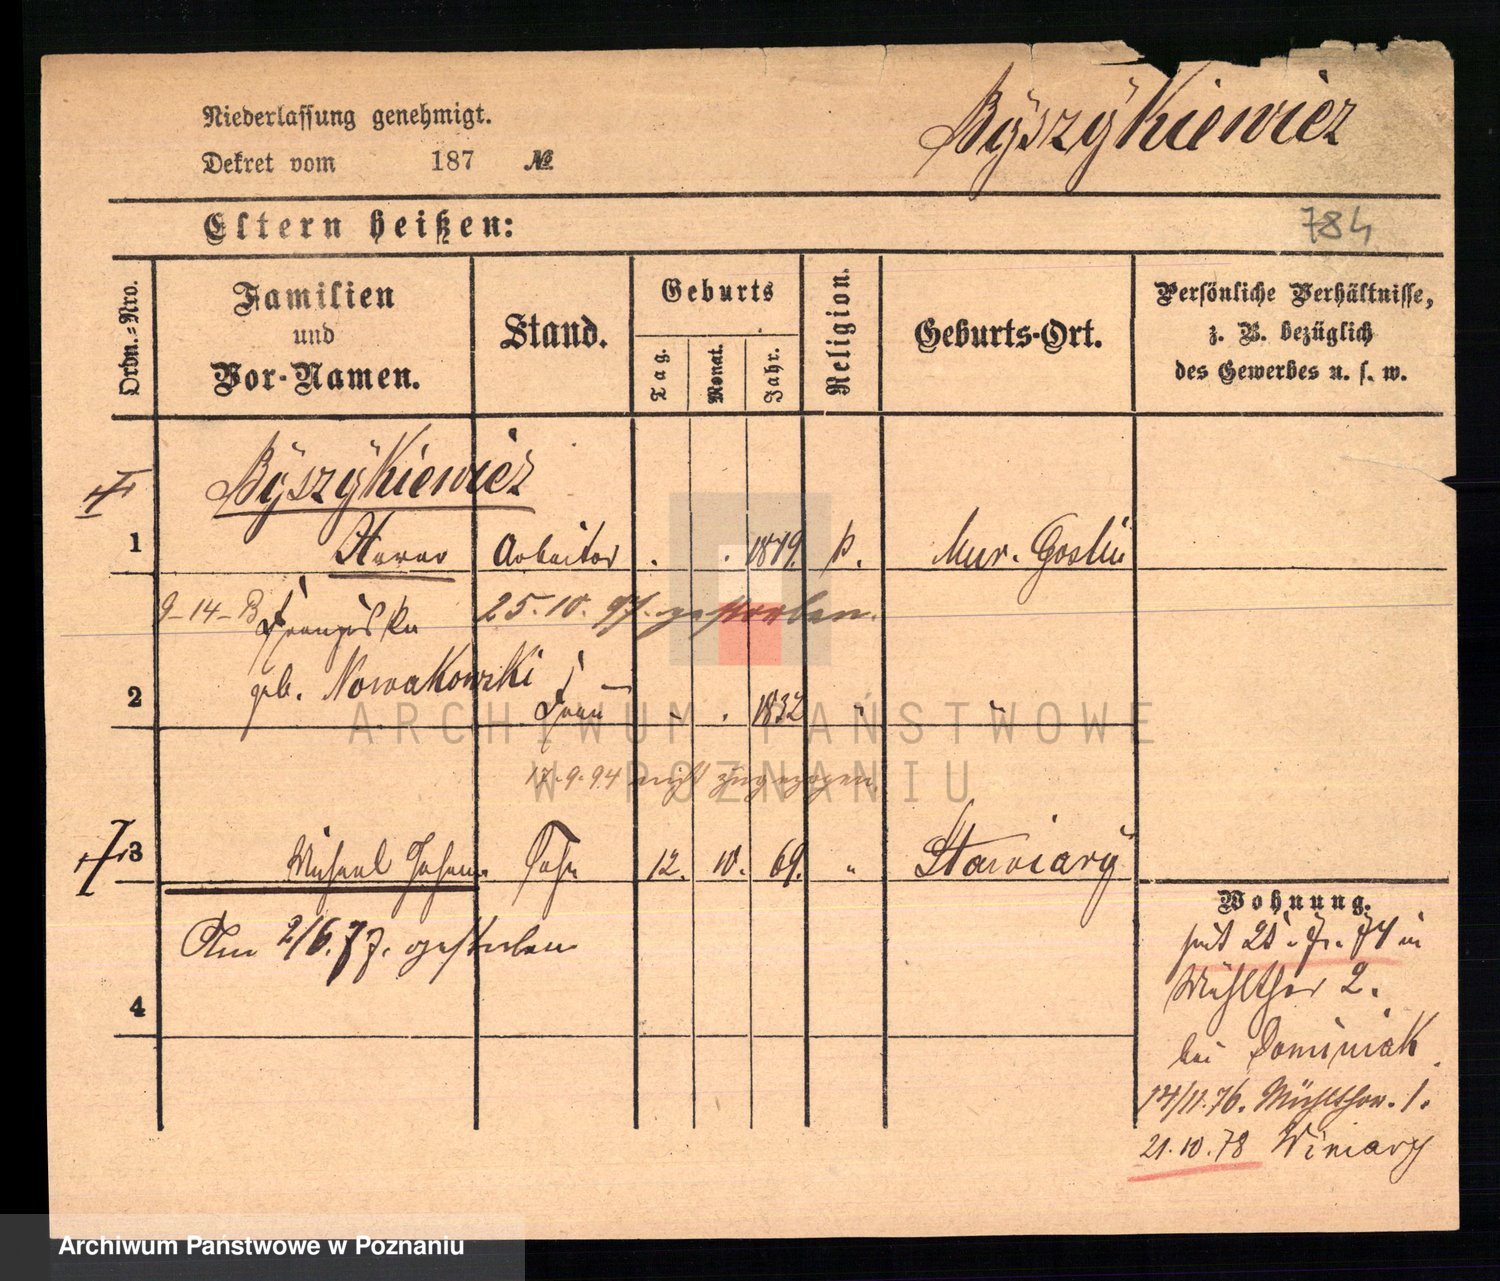 Byszykiewicz
Niederlassung genehmigt.
Dekret vom 187 №
Eltern heißen:
784
Ordn.-Nro.
Familien
und
Vor-Namen.
Stand.
Geburts
Tag.
Monat.
Jahr.
Religion.
Geburts-Ort.
Persönliche Verhältnisse,
z. B. bezüglich
des Gewerbes u. s. w.
Byszykiewicz
1 Arbeiter 18 9. Mur. Goslin
9-14-B Franziska 25.10. gestorben.
geb. Nowakowski
2 Frau 1832 "
17.9.94 nicht zugezogen.
3 Michael Johann Sohn 12. 10. 69. "
Am 2/6.77. gestorben
4
Wohnung.
seit 74 in
Mühlthor 2.
bei Dominiak
17/11.76. Mühlthor. 1.
21.10.78 Winiary
ARCHIWUM PAŃSTWOWE
W POZNANIU
Archiwum Państwowe w Poznaniu